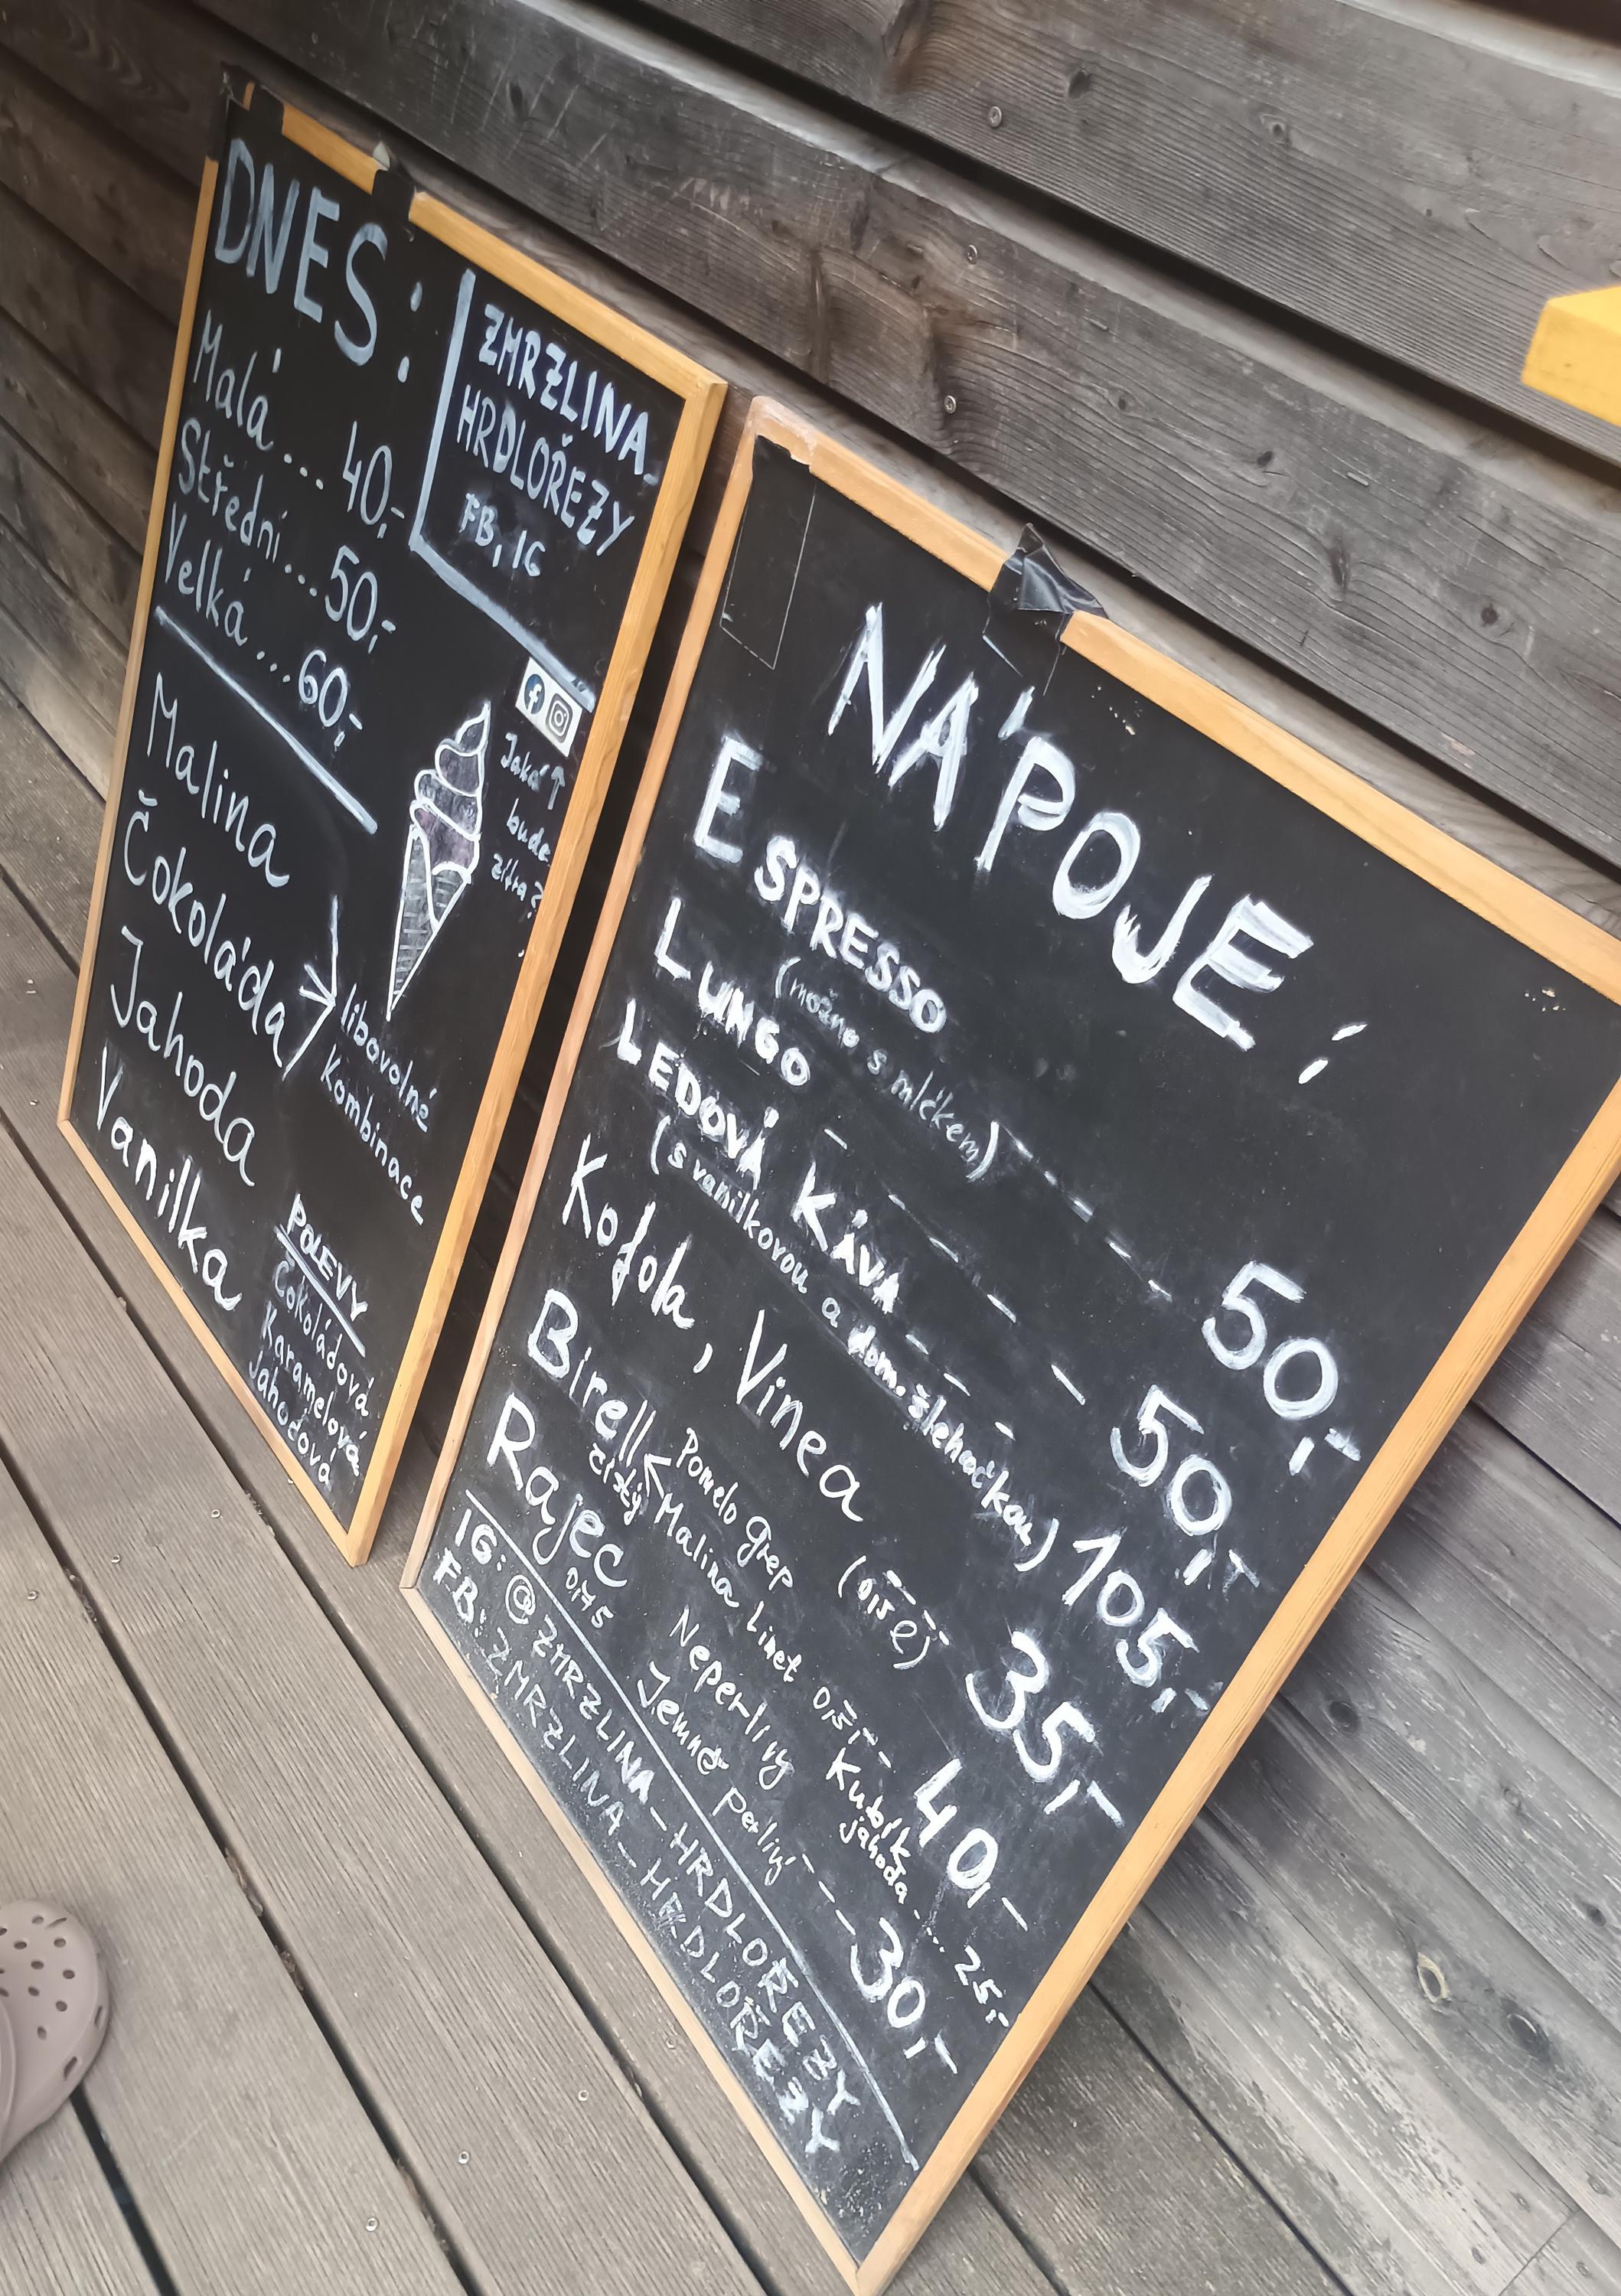 DNES:
Malá... 40,-
Střední... 50,-
Velká... 60,-
ZMRZLINA_
HRDLOŘEZY
FB, IG
Jaká ↑
bude
zítra?
Malina
Čokoláda
Jahoda
Vanilka
libovolné
kombinace
POLEVY
Čokoládová
Karamelová
Jahodová
NÁPOJE:
ESPRESSO
(možno s mlékem) ----- 50,-
LUNGO - - - - - 50,-
LEDOVÁ KÁVA - - -
(s vanilkovou a dom. šlehačkou) 105,-
Kofola, Vinea (0,5 l) 35,-
Birell Pomelo Grep
čistý Malina Limet 0,5,- -- 40,-
Rajec 0,75 Neperlivý Kubík
Jemně perlivý --- 30,-
jahoda .... 25,-
IG: @ZMRZLINA_HRDLOŘEZY
FB: ZMRZLINA_HRDLOŘEZY